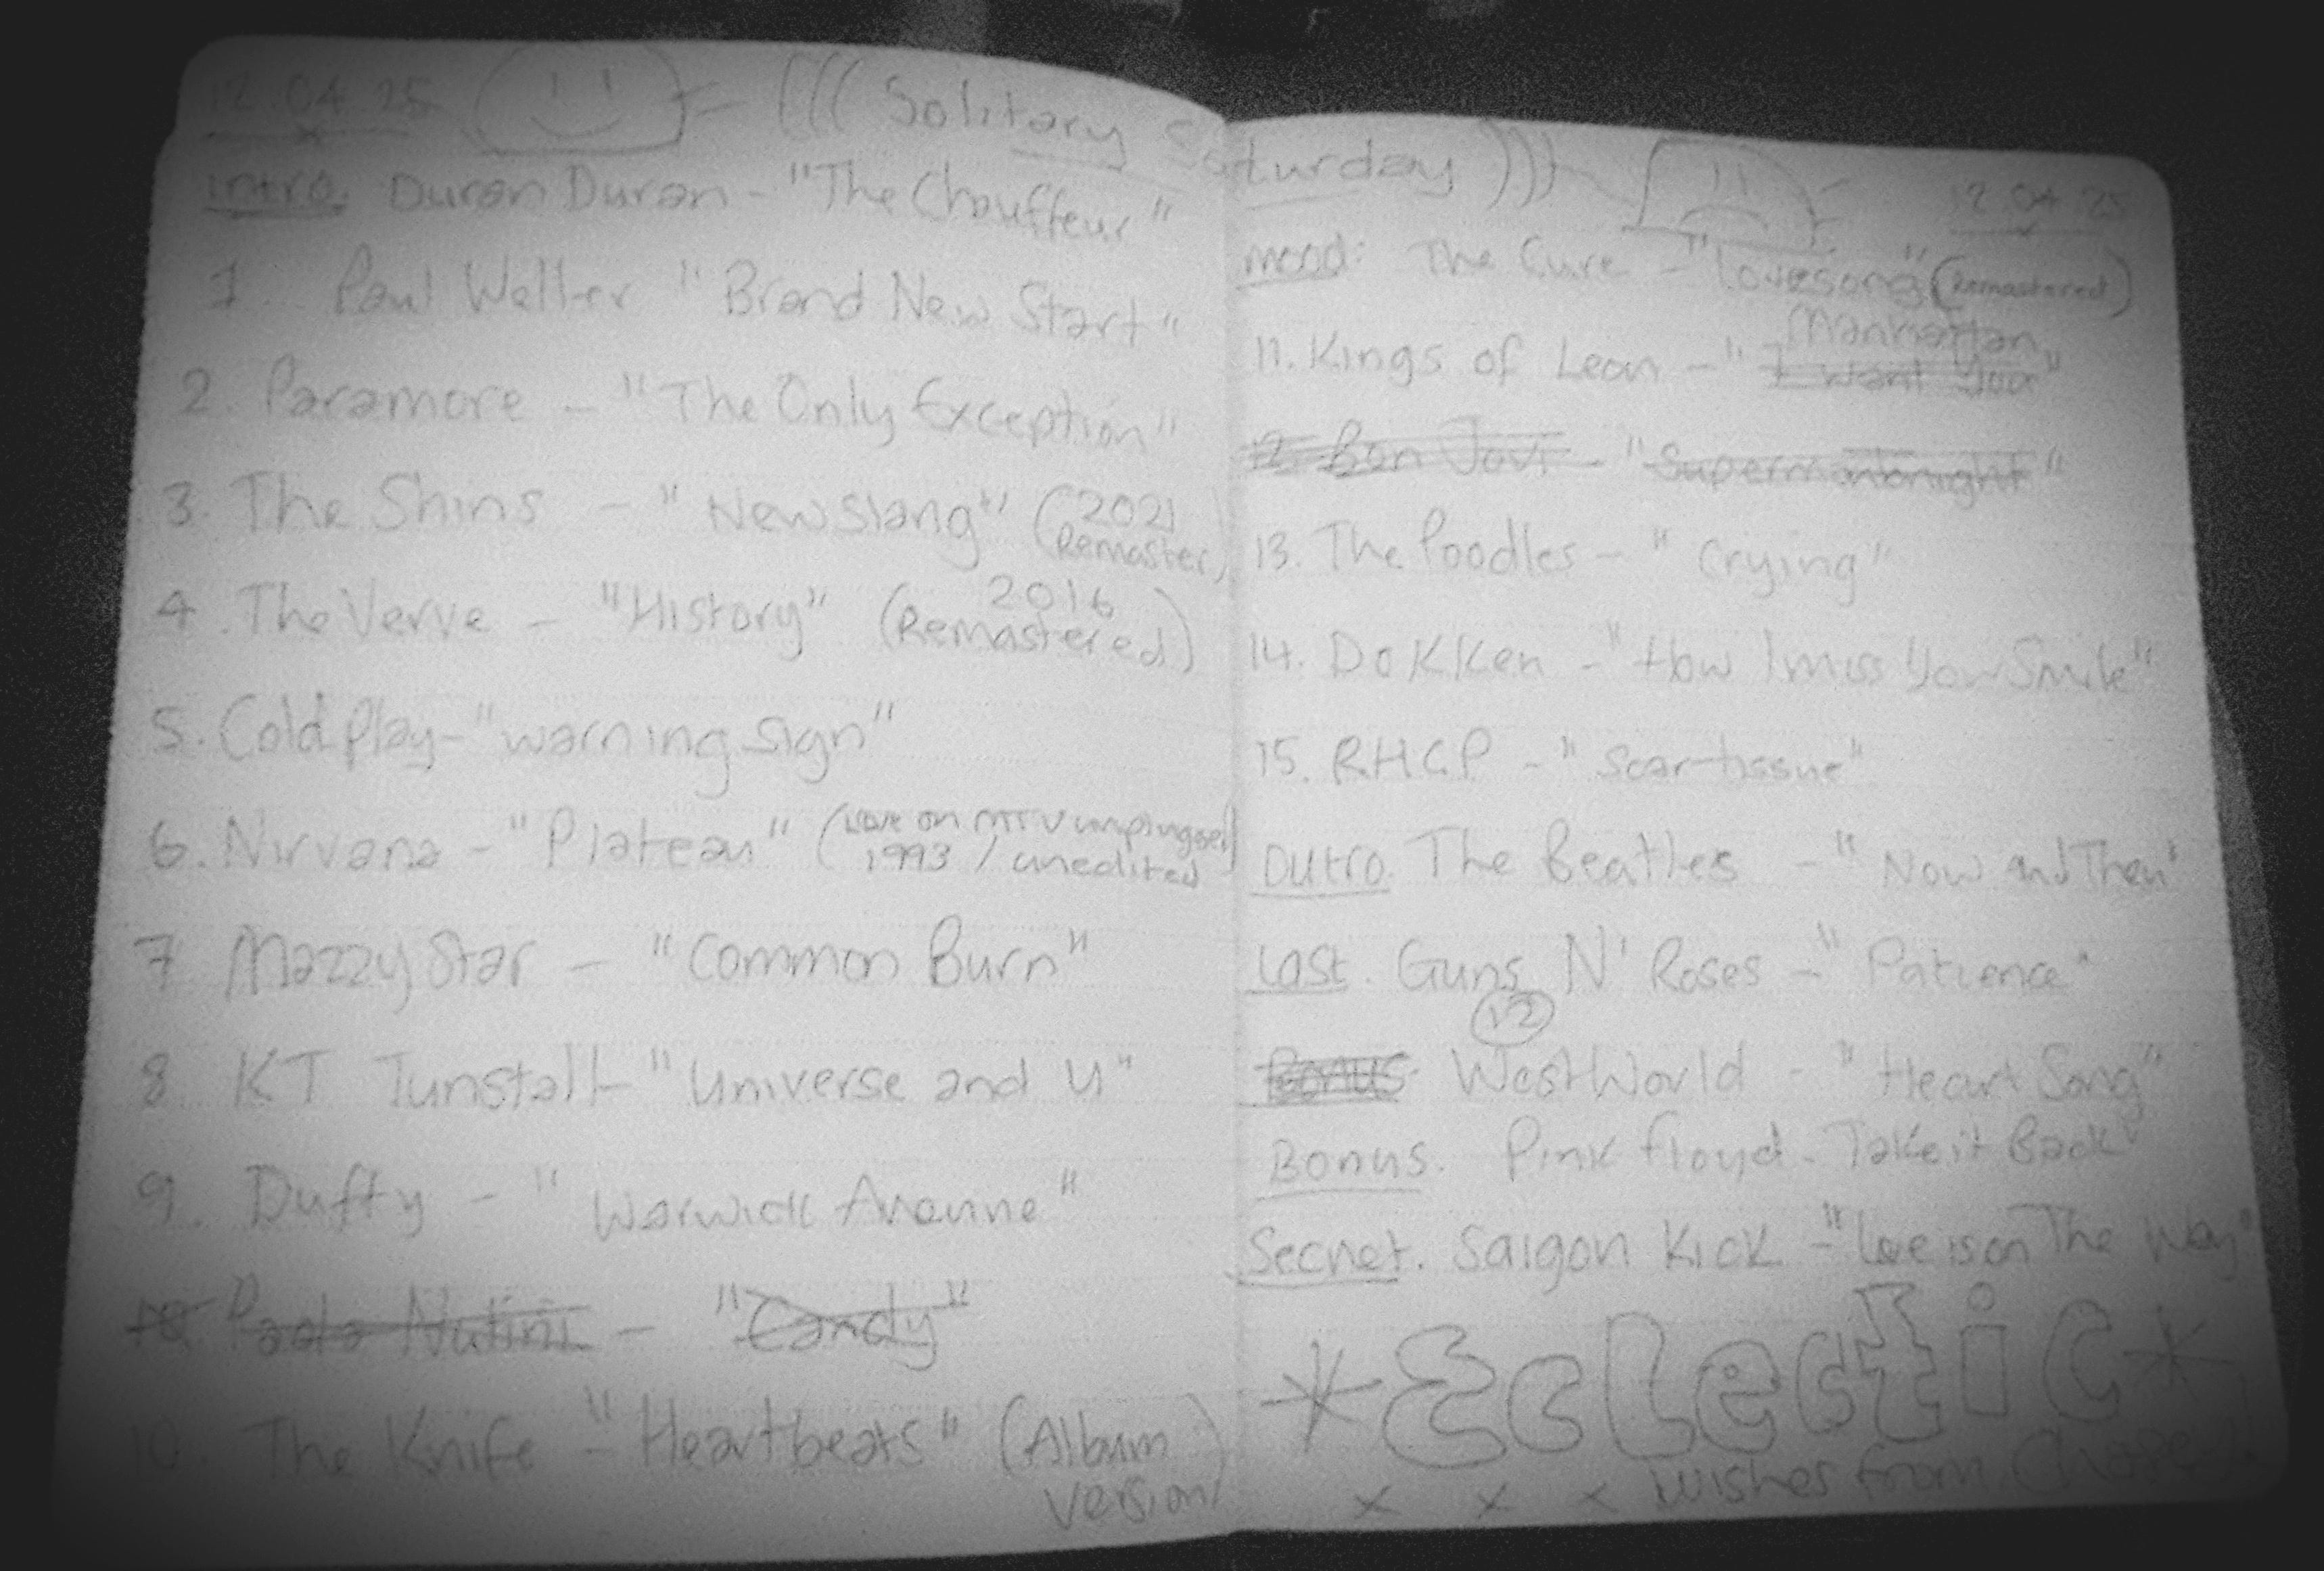 12.04.25 ((( Solitary Saturday ))) 12.04.25
Intro. Duran Duran - "The Chauffeur"
1... Paul Weller "Brand New Start"
2. Paramore - "The Only Exception"
3. The Shins - "New Slang" (2021 Remaster)
4. The Verve - "History" (2016 Remastered)
5. Coldplay - "warning sign"
6. Nirvana - "Plateau" (Live on MTV unplugged 1993 / unedited)
7 Mazzy Star - "Common Burn"
8 KT Tunstall - "Universe and U"
9. Duffy - "Warwick Avenue"
10 Paolo Nutini - "Candy"
10. The Knife - "Heartbeats" (Album version)
mood: The Cure - "Lovesong" (Remastered)
Manhattan
11. Kings of Leon - "I Want You"
12. Bon Jovi - "
13. The Poodles - "Crying"
14. Dokken - "How I miss Your Smile"
15. RHCP - "Scar tissue"
Outro. The Beatles - "Now and Then"
Last. Guns N' Roses - "Patience"
12
Bonus. WestWorld - "Heart Song"
Bonus. Pink floyd - Take it Back"
Secret. Saigon Kick - "Love is on The Way"
*EcLectic*
x x x wishes from